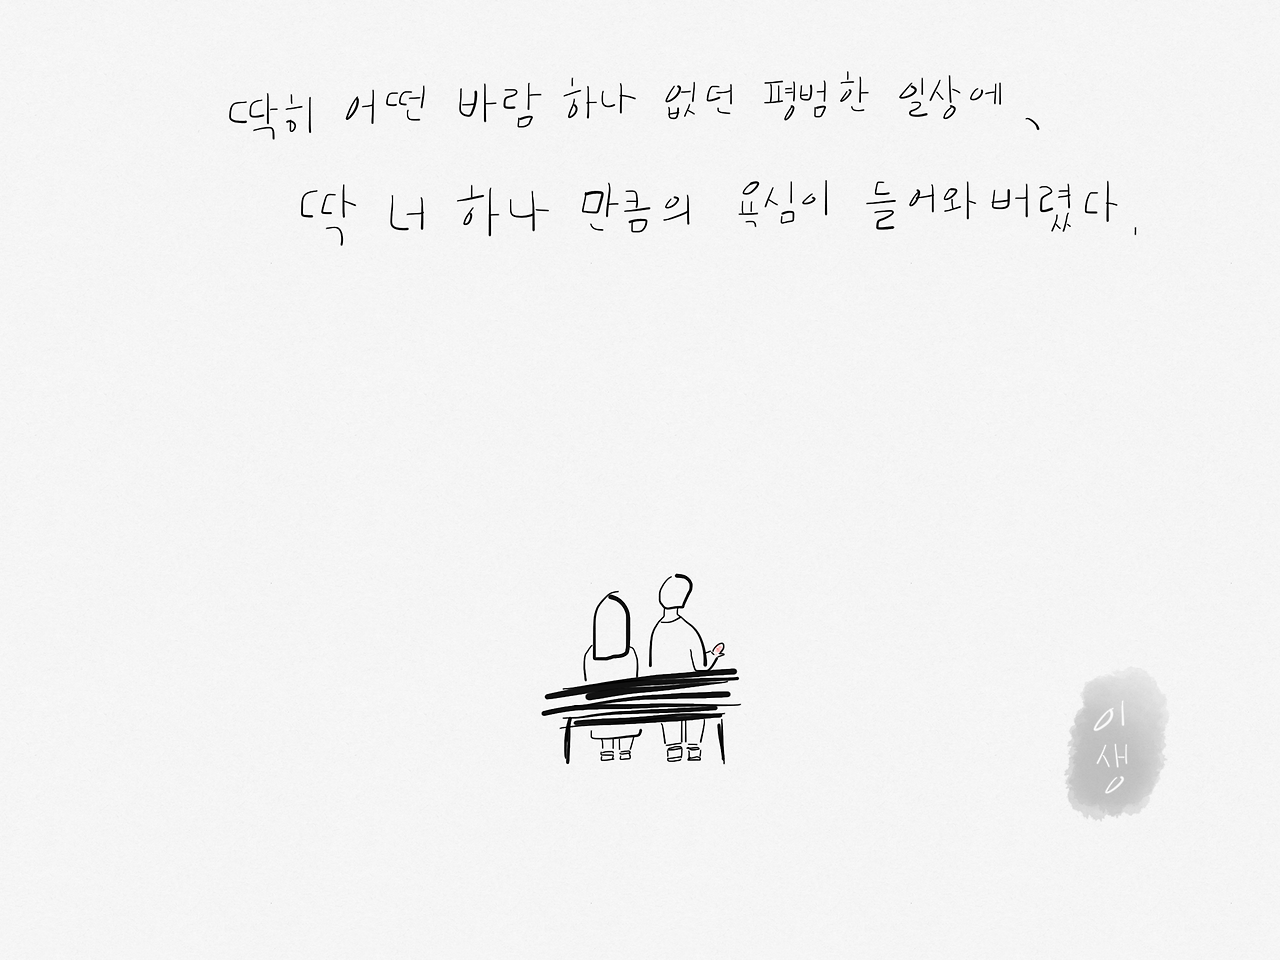 딱히 어떤 바람 하나 없던 평범한 일상에,
딱 너 하나 만큼의 욕심이 들어와버렸다.
이
생